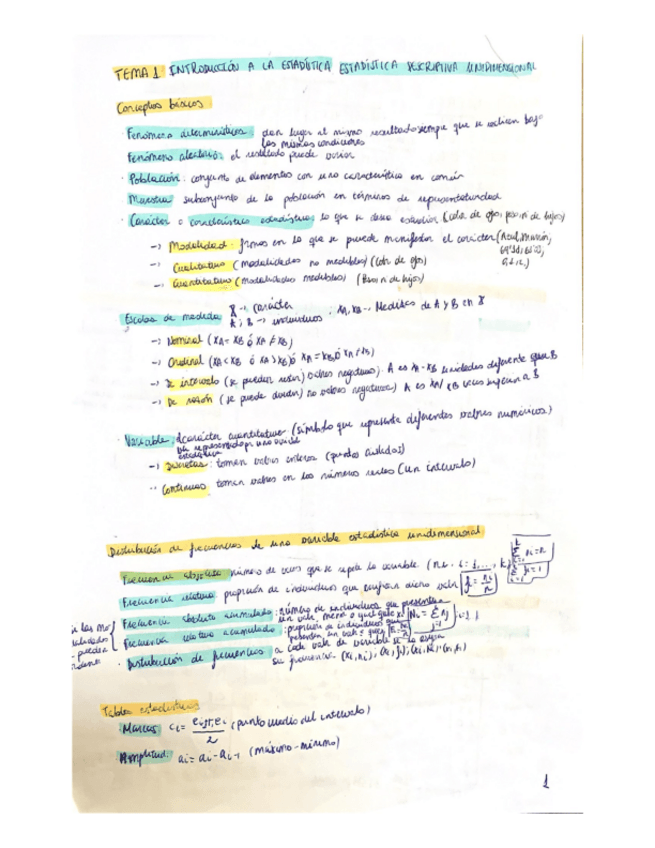 TEMA 1 INTRODUCCIÓN A LA ESTADÍSTICA ESTADÍSTICA DESCRIPTIVA UNIDIMENSIONAL
Conceptos básicos
· Fenómeno determinístico: dan lugar al mismo resultado siempre que se realicen bajo
las mismas condiciones
Fenómeno aleatorio: el resultado puede variar
· Población: conjunto de elementos con una característica en común
Muestra: subconjunto de la población en términos de representatividad
· Carácter o característica estadística: lo que se desea estudiar (color de ojos, peso, nº de hijos)
-> Modalidad: formas en la que se puede manifestar el carácter (Azul, marrón,
-> Cualitativo (modalidades no medibles) (Color de ojos)
-> Cuantitativo (modalidades medibles) (Peso, nº de hijos)
Escalas de medida X -> carácter
A, B -> individuos : XA, XB -> Medidas de A y B en X
-> Nominal (XA = XB ó XA ≠ XB)
-> Ordinal (XA < XB ó XA > XB) ó XA = XB ó XA ≠ XB)
-> De intervalo (se pueden restar) valores negativos). A es XA - XB unidades diferente que B
-> De razón (se puede dividir) no valores negativos) A es XA/XB veces superior a B
· Variable: carácter cuantitativo (símbolo que representa diferentes valores numéricos)
-> Discretas: toman valores enteros (puntos aislados)
·· Continuas: toman valores en los números reales (un intervalo)
Distribución de frecuencias de una variable estadística unidimensional
Frecuencia absoluta: número de veces que se repite la variable
Frecuencia relativa: proporción de individuos que
Frecuencia absoluta acumulada: número de individuos que presentan
un valor menor o igual que
Frecuencia relativa acumulada: proporción de individuos que
· Distribución de frecuencias a cada valor de variable se le asigna
su frecuencia.
Tablas estadísticas
Marcas (punto medio del intervalo)
Amplitud: ai = ai - ai-1 (máximo - mínimo)
1